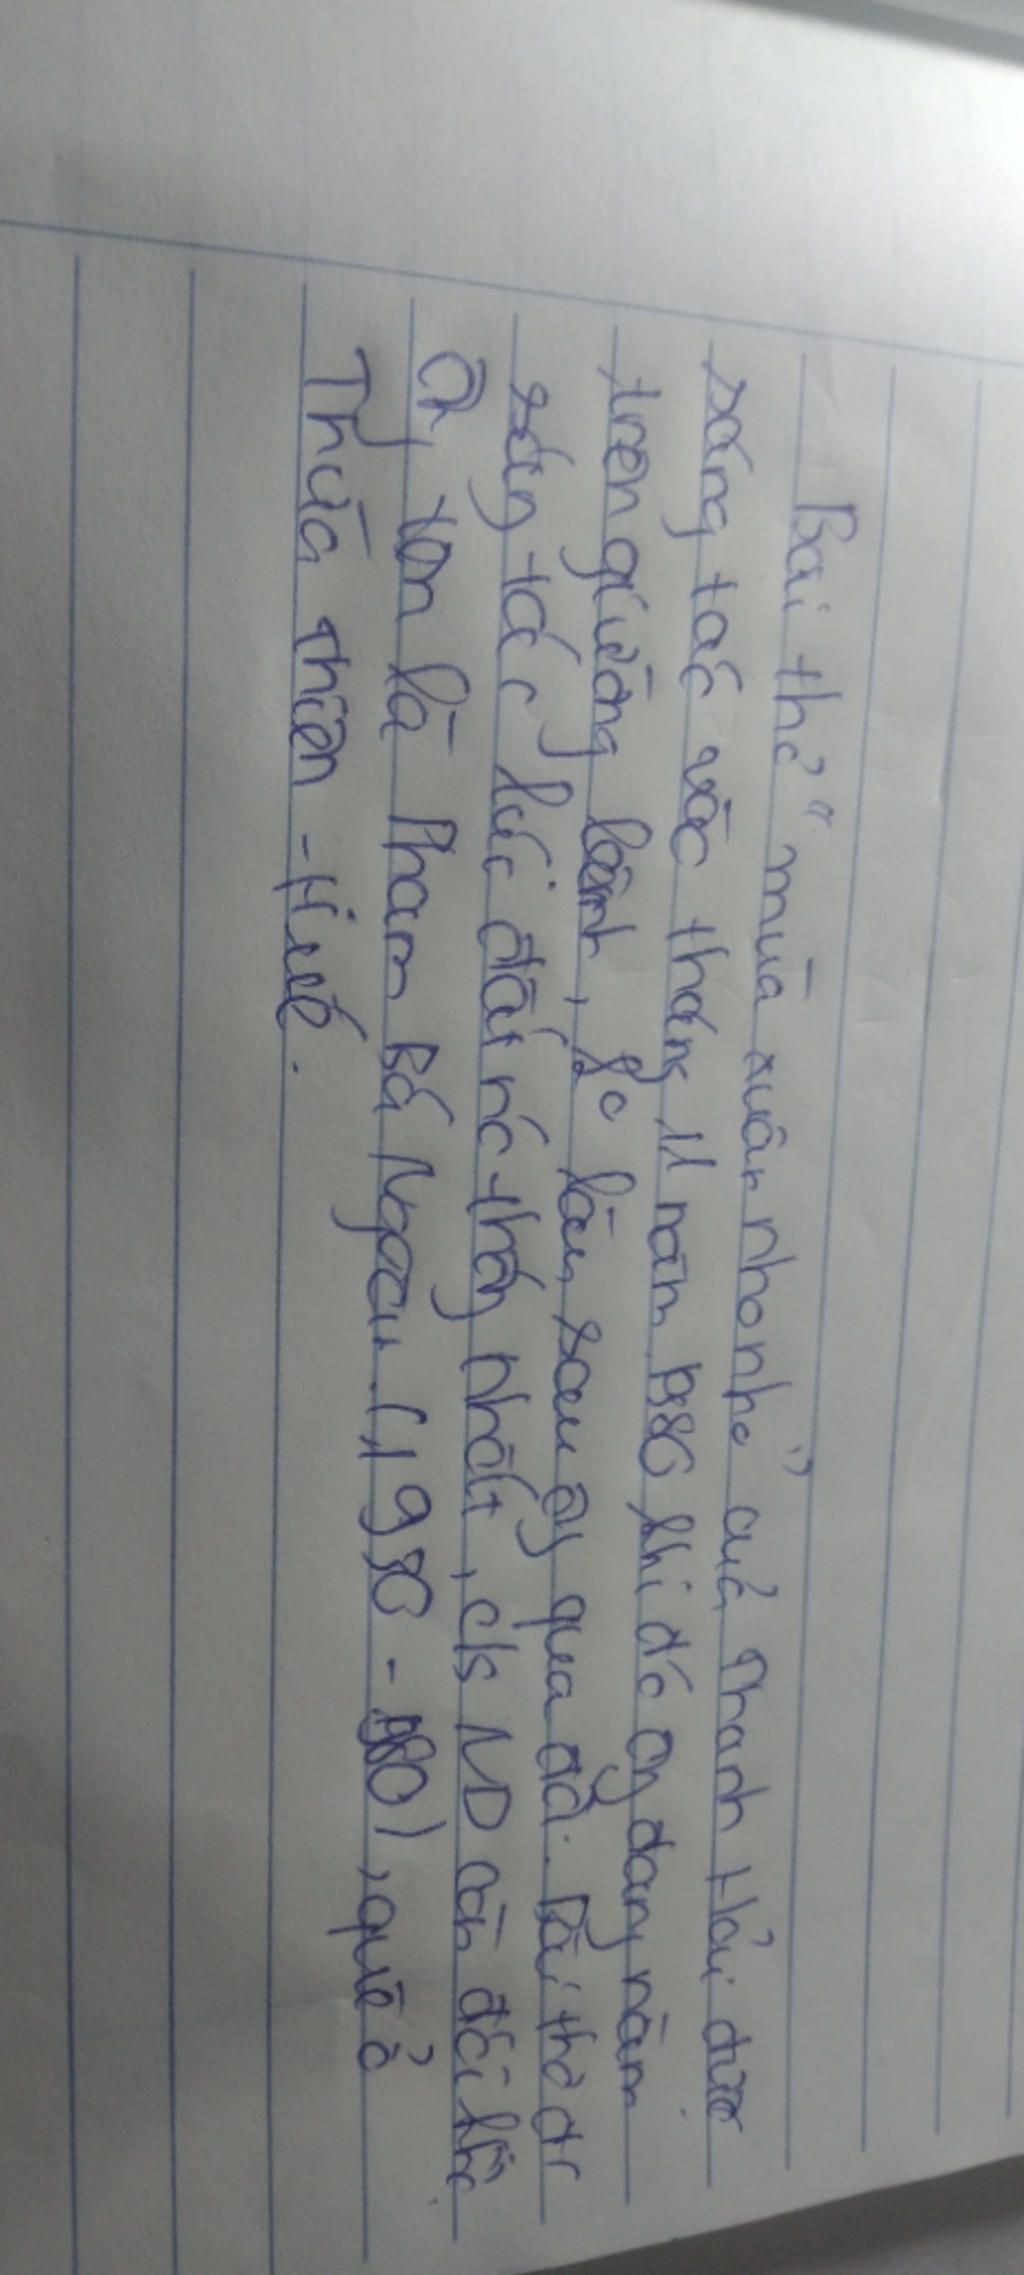 Bài thơ "mùa xuân nho nhỏ" của Thanh Hải được
sáng tác vào tháng 11 năm 1980 khi đó ông đang nằm
trên giường bệnh, ko lâu sau ông qua đời. Bài thơ đc
sáng tác lúc đất nc thống nhất, c/s ND còn đói khổ.
Ông tên là Phạm Bá Ngoãn (1930 - 1980), quê ở
Thừa Thiên - Huế.